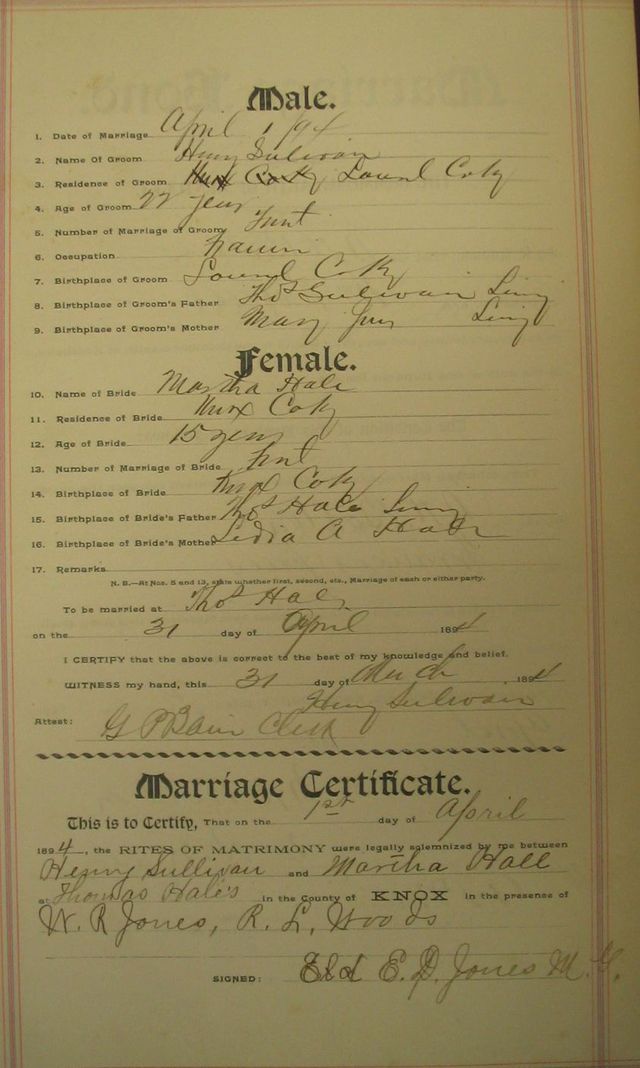 Male.
1. Date of Marriage April 1 /94
2. Name Of Groom Henry Sulivan
3. Residence of Groom Knox Co Ky Laurel Co Ky
4. Age of Groom 22 years
5. Number of Marriage of Groom First
6. Occupation Farmer
7. Birthplace of Groom Laurel Co Ky
8. Birthplace of Groom's Father Thos Sulivan Living
9. Birthplace of Groom's Mother Mary Living
Female.
10. Name of Bride Martha Hale
11. Residence of Bride Knox Co Ky
12. Age of Bride 15 years
13. Number of Marriage of Bride first
14. Birthplace of Bride Knox Co Ky
15. Birthplace of Bride's Father Thos Hale Living
16. Birthplace of Bride's Mother Lidia A Hale
17. Remarks
N. B.—At Nos. 5 and 13, state whether first, second, etc., Marriage of each or either party.
To be married at Thos Hales
on the 31 day of April 1894
I CERTIFY that the above is correct to the best of my knowledge and belief.
WITNESS my hand, this 31 day of March, 1894
Henry Sulivan
Attest: G P Bain Clerk
Marriage Certificate.
This is to Certify, That on the 1st day of April
1894, the RITES OF MATRIMONY were legally solemnized by me between
Henry Sullivan and Martha Hall
at Thomas Hale's in the County of KNOX in the presence of
W. R Jones, R. L. Woods
SIGNED: Eld E. D. Jones M. G.